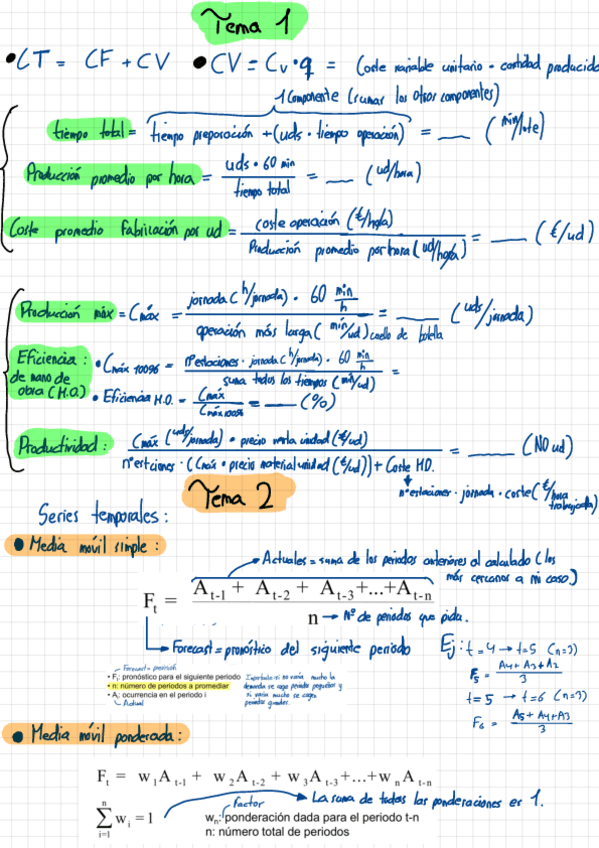 Tema 1
• CT = CF + CV • CV = Cv · q = Coste variable unitario · cantidad producida
1 Componente (sumar los otros componentes)
tiempo total = tiempo preparación + (uds · tiempo operación) = ___ (min/lote)
Producción promedio por hora = uds · 60 min / tiempo total = ___ (ud/hora)
Coste promedio fabricación por ud = coste operación (€/hora) / Producción promedio por hora (ud/hora) = ___ (€/ud)
Producción máx = Cmáx = jornada (h/jornada) · 60 min/h / operación más larga (min/ud) cuello de botella = ___ (uds/jornada)
Eficiencia de mano de obra (H.O.) : • Cmáx 100% = nºestaciones · jornada (h/jornada) · 60 min/h / suma todos los tiempos (min/ud) =
• Eficiencia H.O. = Cmáx / Cmáx 100% = ___ (%)
Productividad: Cmáx (uds/jornada) · precio venta unidad (€/ud) / nºestaciones · ((Cmáx · precio material unidad (€/ud)) + Coste MD. = ___ (NO ud)
nºestaciones · jornada · coste (€/hora trabajada)
Tema 2
Series temporales:
• Media móvil simple:
Actuales = suma de los periodos anteriores al calculado (los más cercanos a mi caso)
Ft = At-1 + At-2 + At-3 +...+At-n / n
Nº de periodos que pida.
Forecast = pronóstico del siguiente periodo
Ej: t = 4 → t=5 (n=3)
F5 = A4 + A3 + A2 / 3
t=5 → t=6 (n=3)
F6 = A5 + A4 + A3 / 3
Forecast = previsión
• Ft: pronóstico para el siguiente periodo
• n: número de periodos a promediar
• Ai: ocurrencia en el periodo i
Actual
Importante: si no varía mucho la
demanda se coge periodos pequeños y
si varía mucho se cogen
periodos grandes.
• Media móvil ponderada:
Ft = w1At-1 + w2At-2 + w3At-3+...+wnAt-n
factor
La suma de todas las ponderaciones es 1.
n∑i=1 wi = 1
wn: ponderación dada para el periodo t-n
n: número total de periodos